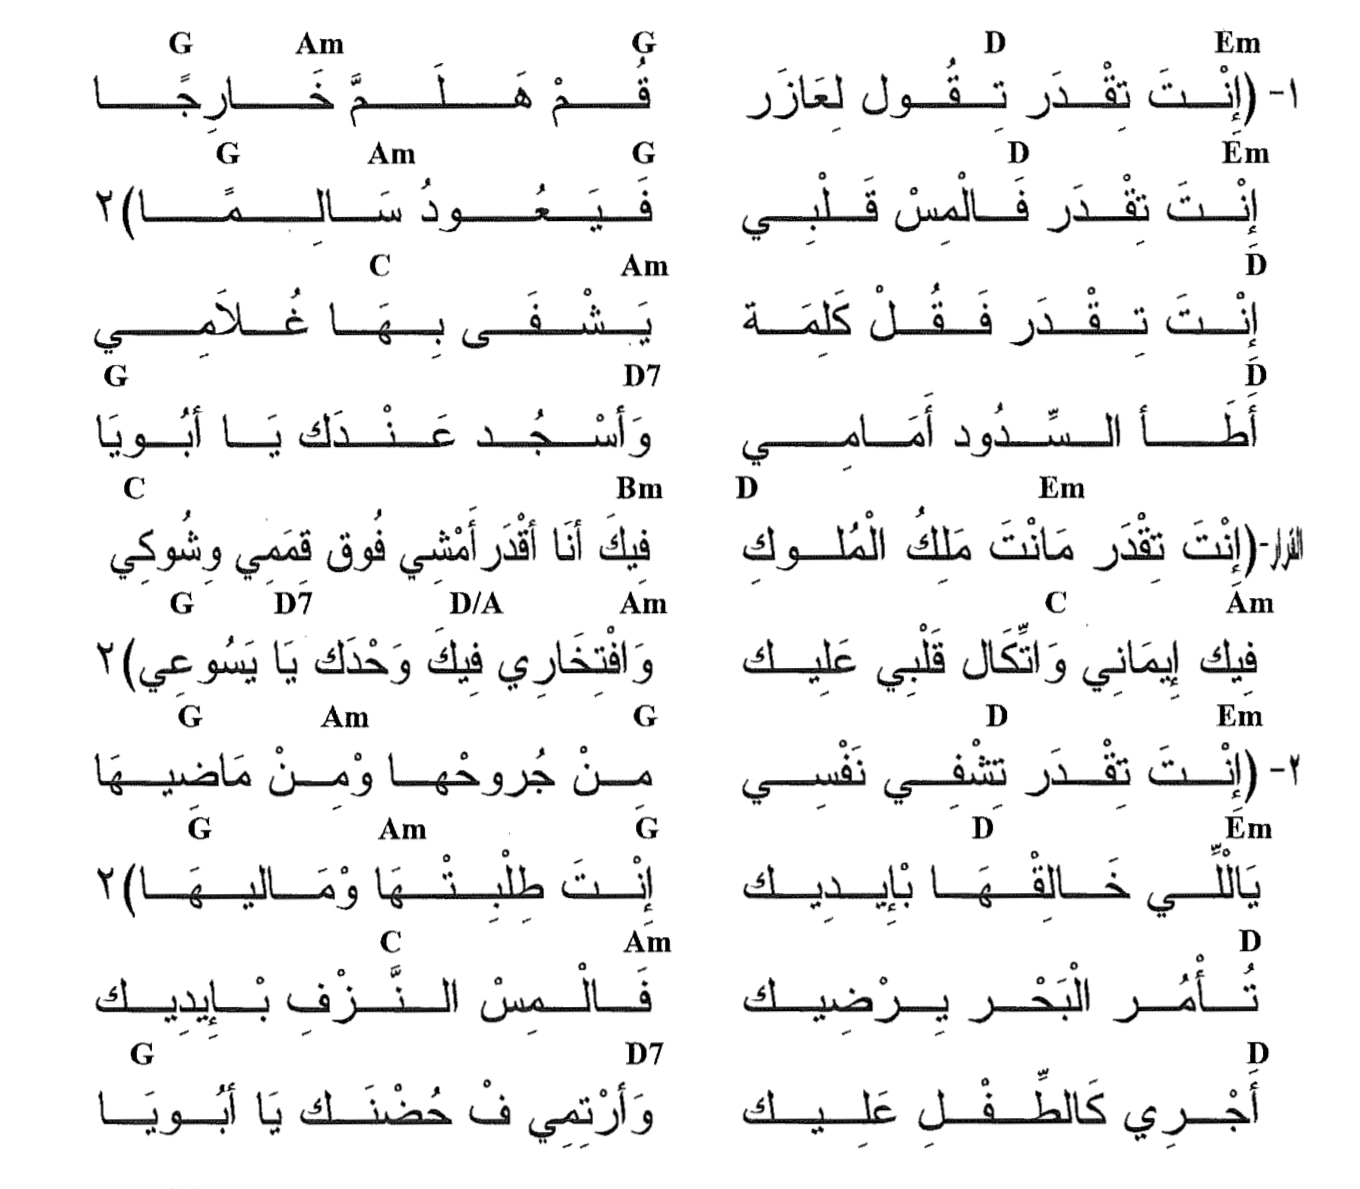 G Am G D Em
١- (إِنْتَ تِقْدَر تِقُول لِعَازَر قُمْ هَلَمَّ خَارِجًا
G Am G D Em
إِنْتَ تِقْدَر فَالْمِسْ قَلْبِي فَيَعُودُ سَالِمًا)٢
C Am D
إِنْتَ تِقْدَر فَقُلْ كَلِمَة يَشْفَى بِهَا غُلاَمِي
G D7 D
أَطَأ السِّدُود أَمَامِي وَأسْجُد عَنْدَك يَا أبُويَا
C Bm D Em
القرار-(إِنْتَ تِقْدَر مَانْتَ مَلِكُ الْمُلوكِ فِيكَ أنَا أقْدَر أَمْشِي فُوق قِمَمِي وِشُوكِي
G D7 D/A Am C Am
فِيك إِيمَانِي وَاتِّكَال قَلْبِي عَلِيك وَافْتِخَارِي فِيكَ وَحْدَك يَا يَسُوعِي)٢
G Am G D Em
٢- (إِنْتَ تِقْدَر تِشْفِي نَفْسِي مِنْ جُروحْها وْمِنْ مَاضيهَا
G Am G D Em
يَاللِّي خَالِقْهَا بْإِيدِيك إِنْتَ طِلْبِتْهَا وْمَاليهَا)٢
C Am D
تُأْمُر الْبَحْر يِرْضِيك فَالْمِسْ النَّزْفِ بْإِيدِيك
G D7 D
أَجْرِي كَالطِّفْلِ عَلِيك وَأَرْتِمِي فْ حُضْنَك يَا أبُويَا